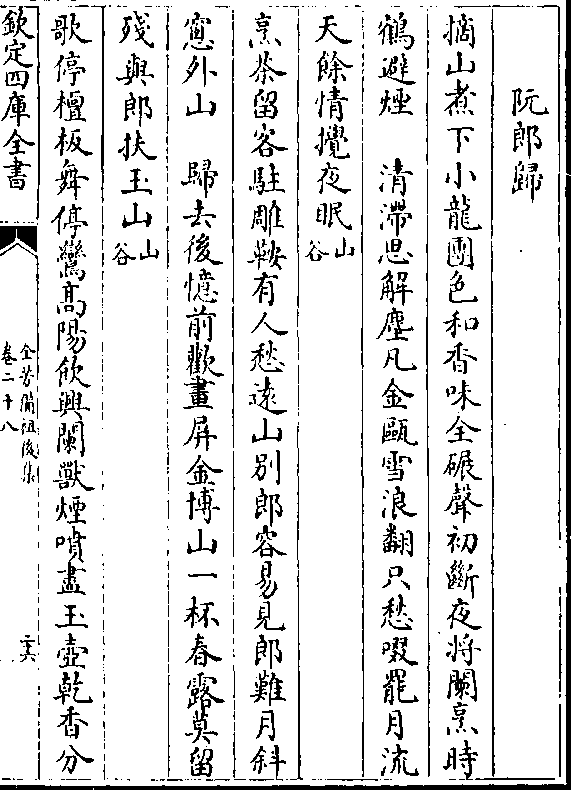 阮郎歸
摘山煮下小龍團色和香味全碾聲初斷夜將闌烹時
鶴避煙　清滯思解塵凡金甌雪浪翻只愁啜罷月流
天餘情攪夜眠山谷
烹茶留客駐雕鞍有人愁遠山别郎容易見郎難月斜
窻外山　歸去後憶前歡畫屏金博山一杯春露莫留
殘與郎扶玉山山谷
歌停檀板舞停鸞髙陽飲興闌獸煙噴盡玉壺乾香分
欽定四庫全書
全芳備祖後集
卷二十八
二六